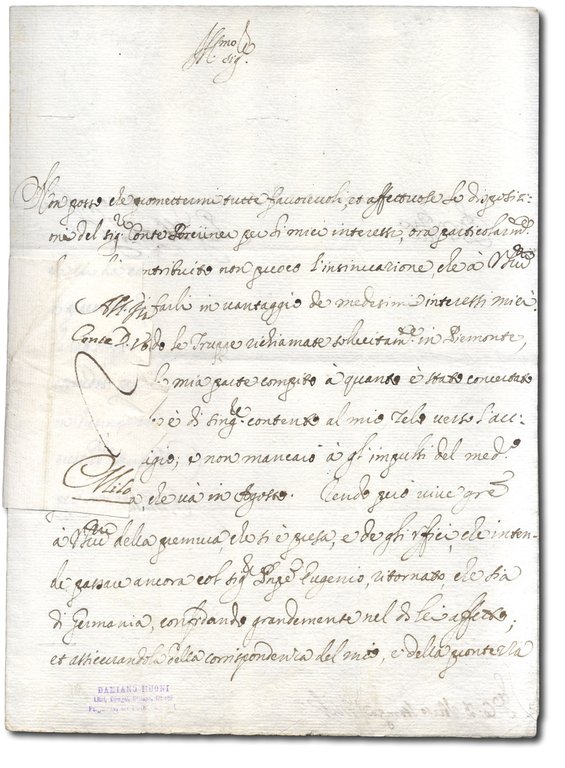 Ill.mo Sig.
Non posso che promettermi tutte favorevoli, et affettuose le disposizio:
ni del sig.r Conte per li miei interessi, ora particolarm.te
contribuito non poco l'insinuazione che à
farli in vantaggio de medesimi interessi miei.
le Truppe richiamate sollecitam.te in Piemonte,
mia parte compito à quanto è stato concertato
è di sing.re contento al mio zelo verso l'acc:
e non mancaiò à gl'impulsi del med.o
che và in Agosto. Rendo però vive gre
à della premura, che si è presa, e de gli uffici, che inten:
de passare ancora col sig.r Eugenio, ritornato che sia
di Germania, confidando grandemente nel di lei affetto;
et assicurandola della corrispondenza del mio, e della prontezza
Milo
DAMIANO MUONI